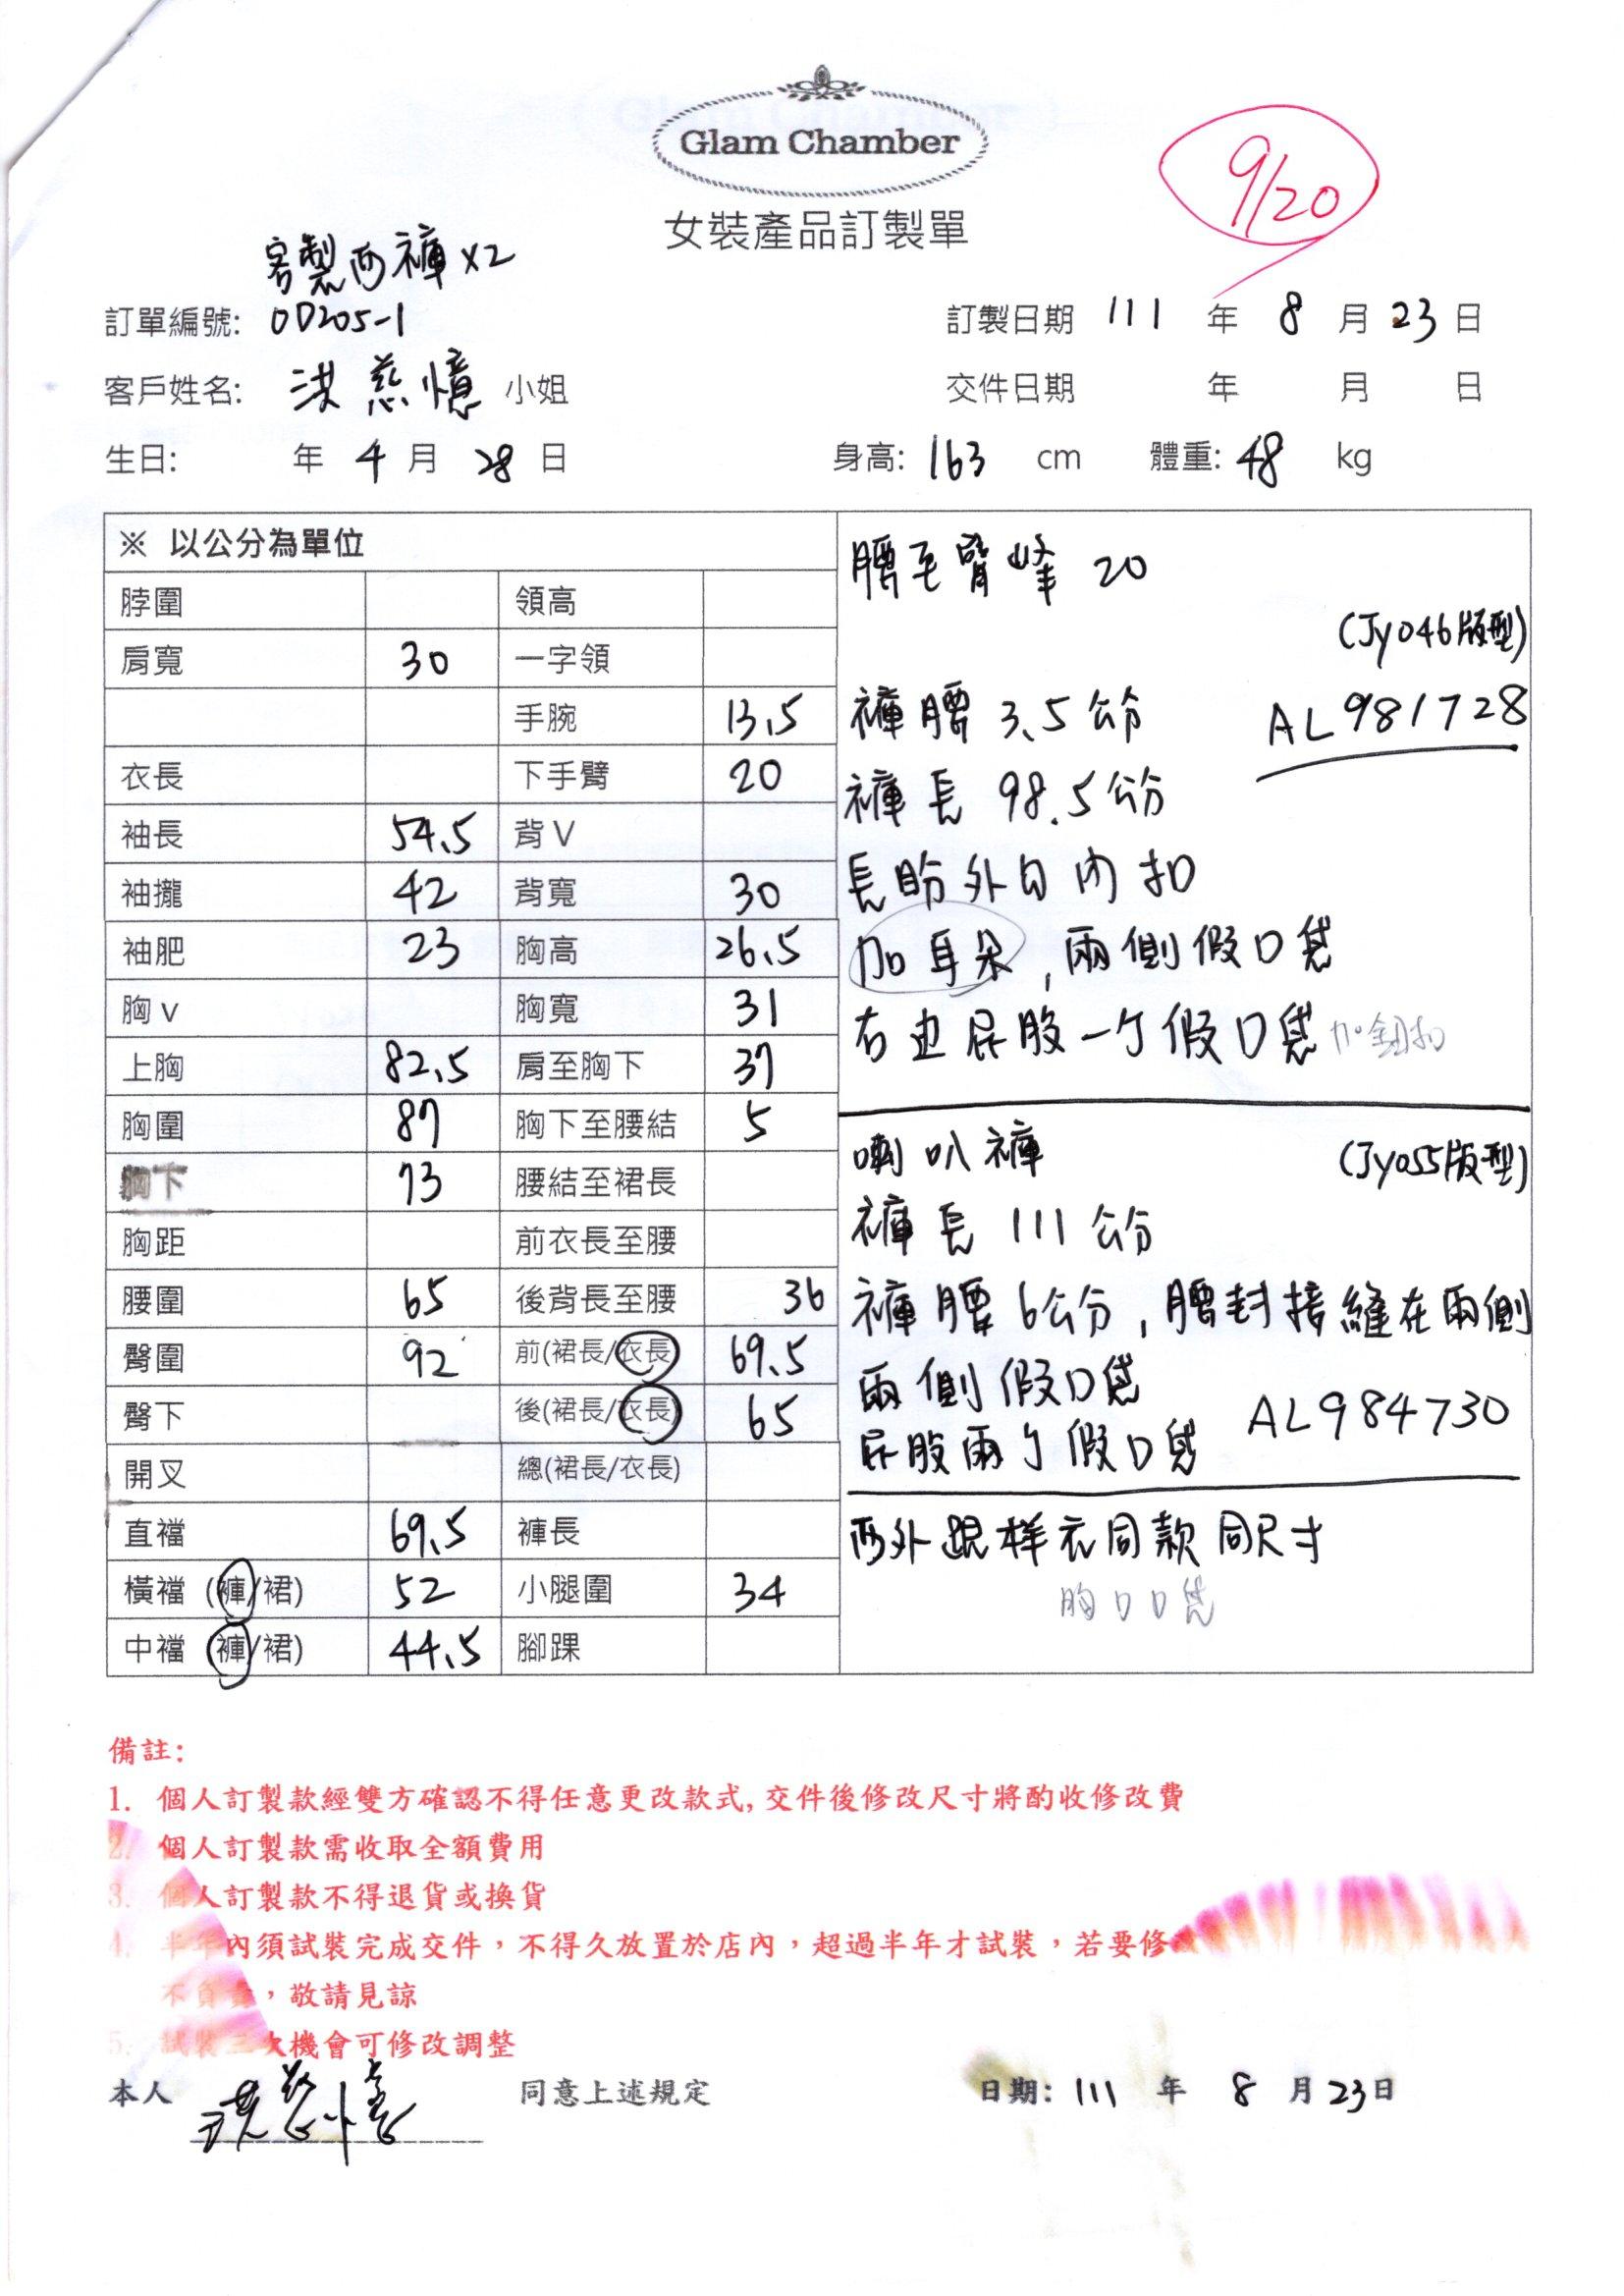 Glam Chamber
9/20
女裝產品訂製單
客製西褲x2
訂單編號: OD205-1
訂製日期 111 年 8 月 23 日
客戶姓名: 洪慈憶 小姐
交件日期 年 月 日
生日: 年 4 月 28 日
身高: 163 cm 體重: 48 kg
※ 以公分為單位
脖圍 領高
肩寬 30 一字領
手腕 13.5
衣長 下手臂 20
袖長 54.5 背V
袖攏 42 背寬 30
袖肥 23 胸高 26.5
胸v 胸寬 31
上胸 82.5 肩至胸下 37
胸圍 87 胸下至腰結 5
胸下 73 腰結至裙長
胸距 前衣長至腰
腰圍 65 後背長至腰 36
臀圍 92 前(裙長/衣長) 69.5
臀下 後(裙長/衣長) 65
開叉 總(裙長/衣長)
直襠 69.5 褲長
橫襠 (褲/裙) 52 小腿圍 34
中襠 (褲/裙) 44.5 腳踝
腰至臀峰 20
(Jy046版型)
褲腰 3.5公分 AL981728
褲長 98.5公分
外 內扣
加耳朵,兩側假口袋
右边屁股一个假口袋 加鈕扣
喇叭褲 (Jy055版型)
褲長 111公分
褲腰6公分,腰封接縫在兩側
兩側假口袋
屁股兩个假口袋 AL984730
西外跟样衣同款同尺寸
胸口口袋
備註:
1. 個人訂製款經雙方確認不得任意更改款式, 交件後修改尺寸將酌收修改費
2. 個人訂製款需收取全額費用
3. 個人訂製款不得退貨或換貨
4. 半年內須試裝完成交件，不得久放置於店內，超過半年才試裝，若要修
不負責，敬請見諒
5. 試裝三次機會可修改調整
本人 洪慈憶 同意上述規定 日期: 111 年 8 月 23日